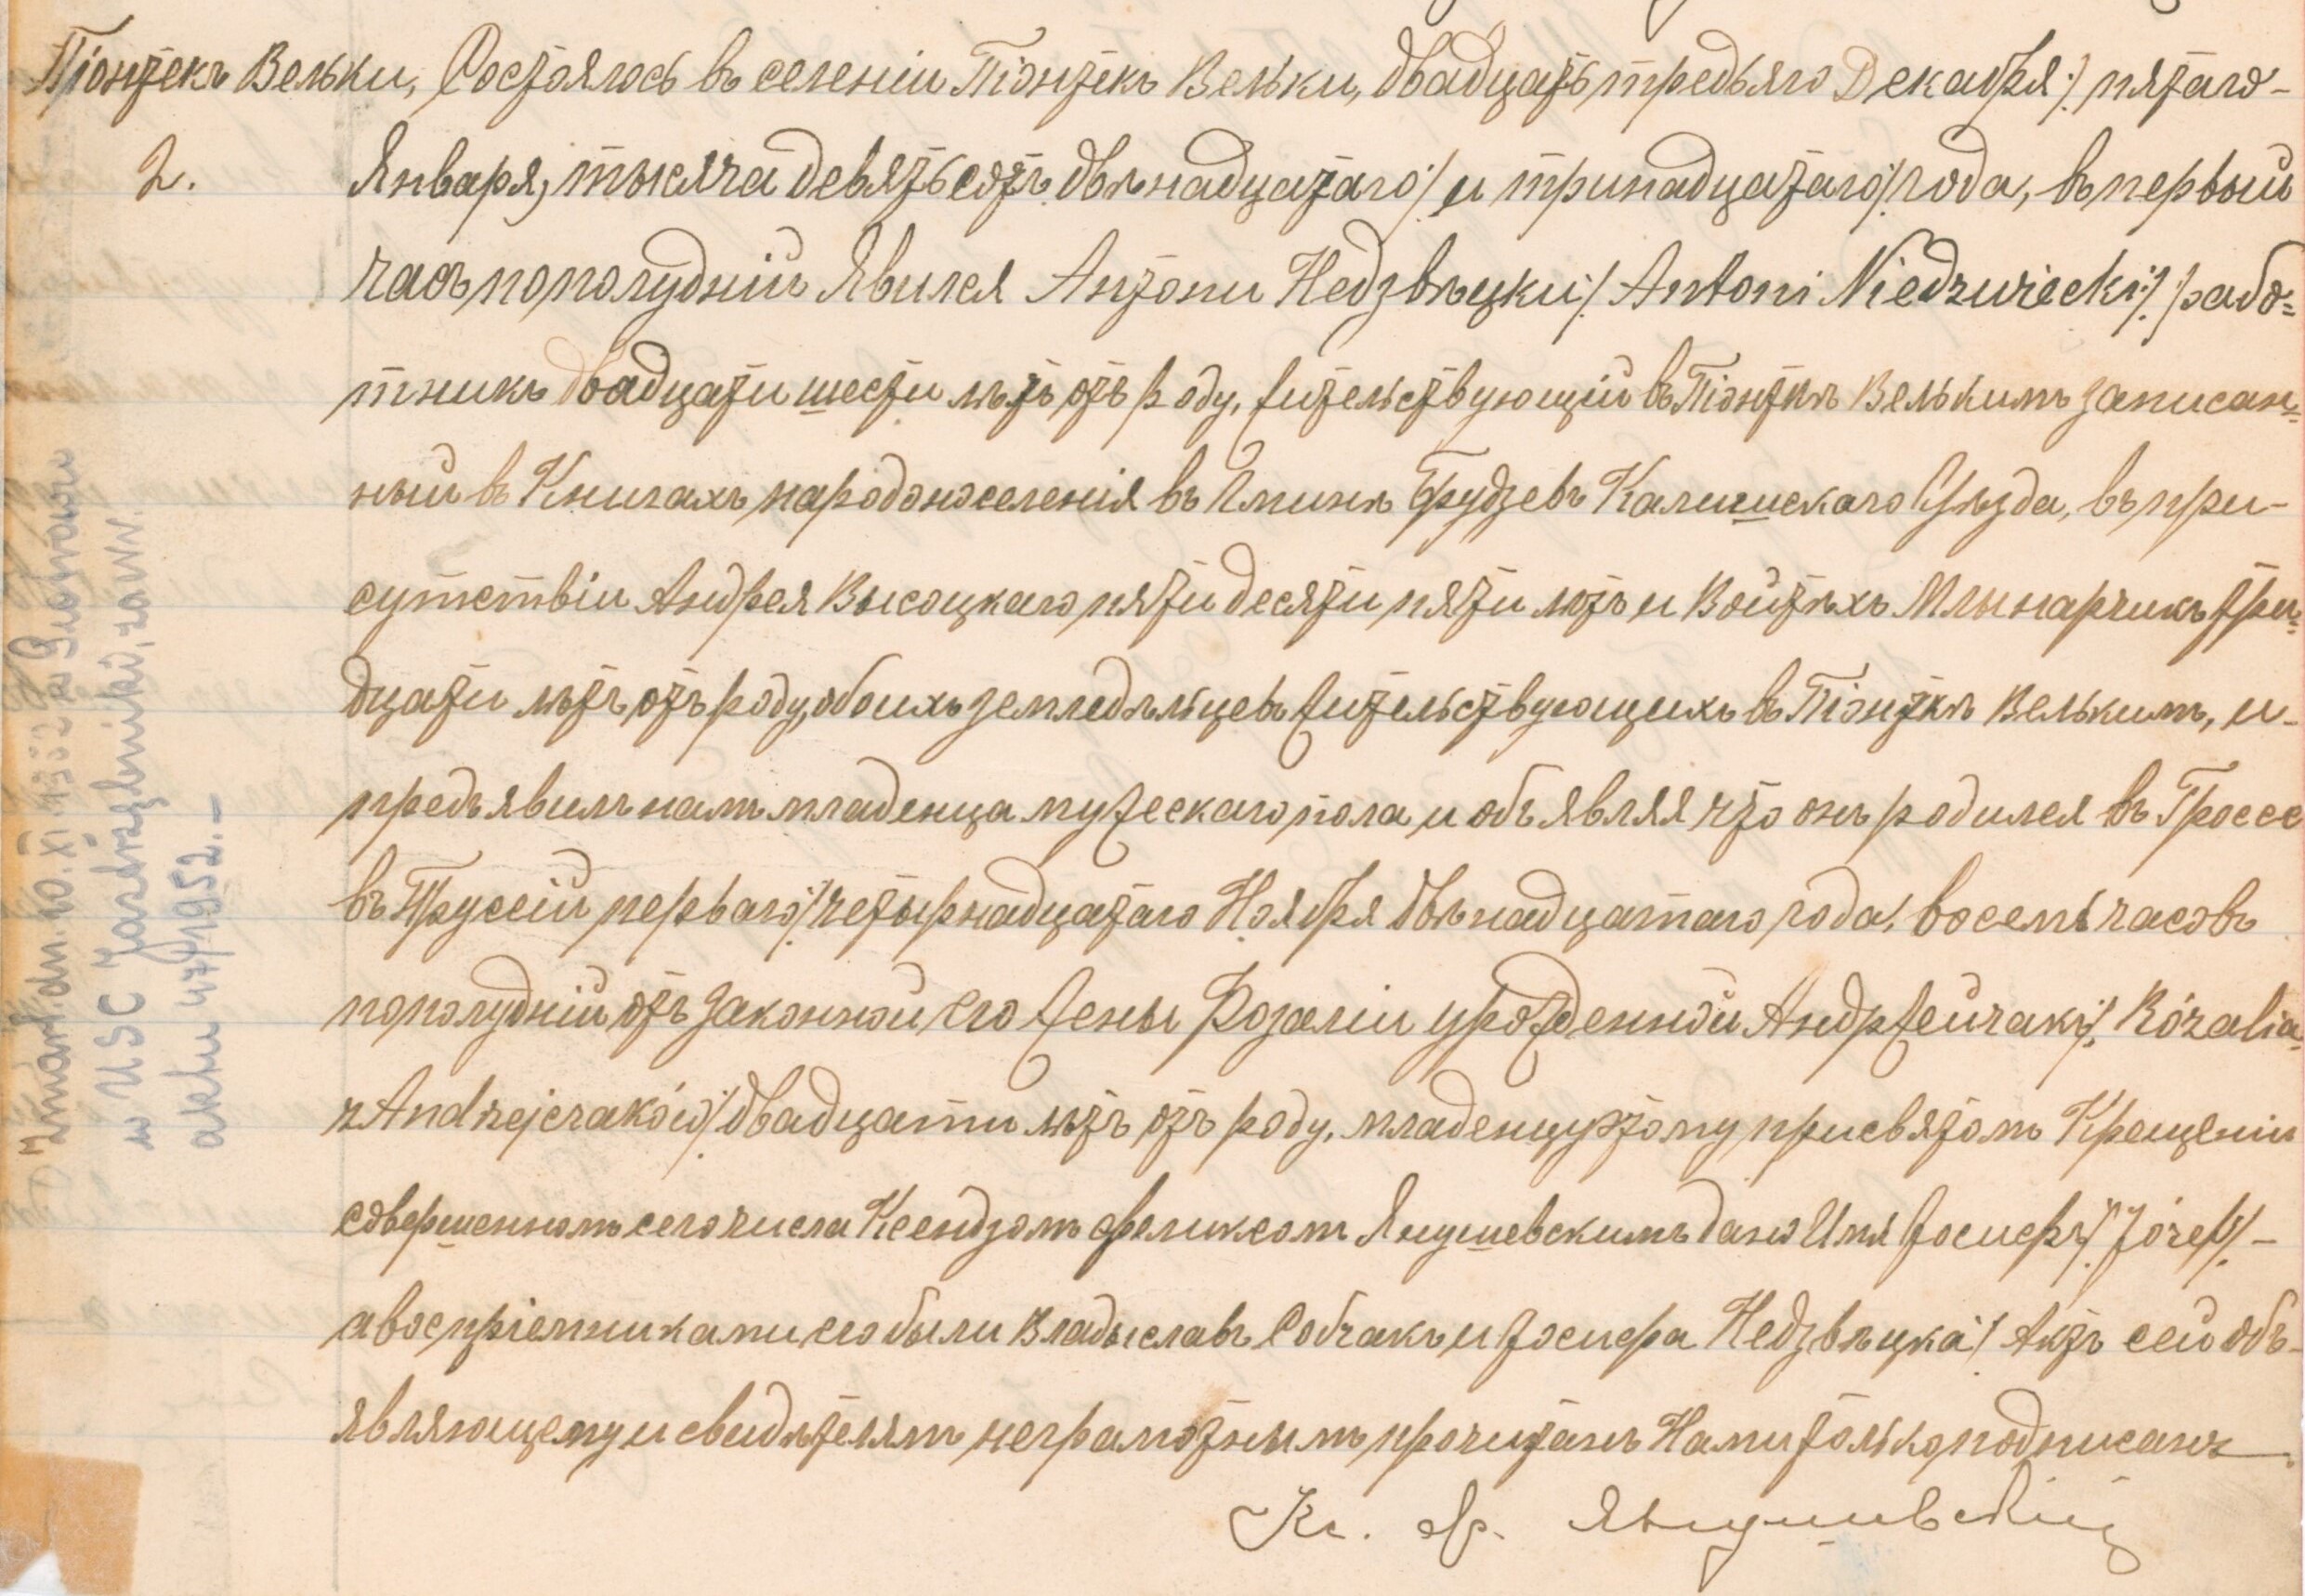 Піонтекъ Вельки, Состоялось въ селеніи Піонтекъ Вельки, двадцать третьяго Декабря /: пятаго -
2. Января, тысяча девятьсотъ двѣнадцатаго /: и тринадцатаго :/ года, въ первый
часъ пополудніи явился Антони Недзвѣцки /: Antoni Niedzwiecki :/ рабо=
тникъ двадцати шести лѣтъ отъ роду, жительствующій въ Піонткѣ Велькимъ записан=
ный въ Книгахъ народонаселенія въ Гминѣ Брудзевъ Калишскаго Уѣзда, въ при-
сутствіи Андрея Высоцкаго пятидесяти пяти лѣтъ и Войтѣхъ Млынарчикъ три=
дцати лѣтъ отъ роду, обоихъ земледѣльцевъ жительствующихъ въ Піонткѣ Велькимъ, и -
предъявилъ намъ младенца мужескаго пола и объявляя что онъ родился въ Гроссе
въ Пруссіи перваго /: четырнадцатаго Ноября двѣнадцатаго года, восемь часовъ
пополудніи отъ законной его жены Розаліи урожденной Андржейчакъ /: Rózalia
z Andrzejczaków :/ двадцати лѣтъ отъ роду, младенцу этому при святомъ Крещеніи
совершенномъ сего числа Ксендзомъ Феликсомъ Янушевскимъ дано Имя Іосифъ /: Józef :/ -
а воспріемниками его были Владыславъ Собчакъ и Іосифа Недзвѣцка :/ Актъ сей объ-
являющему и свидѣтелямъ неграмотнымъ прочитанъ Нами только подписанъ
Кс. Ф. Янушевскій
Zmarł dn. 10.XI.1952 w
w USC Jastrzębniki, zaww.
aktu 47/1952. -